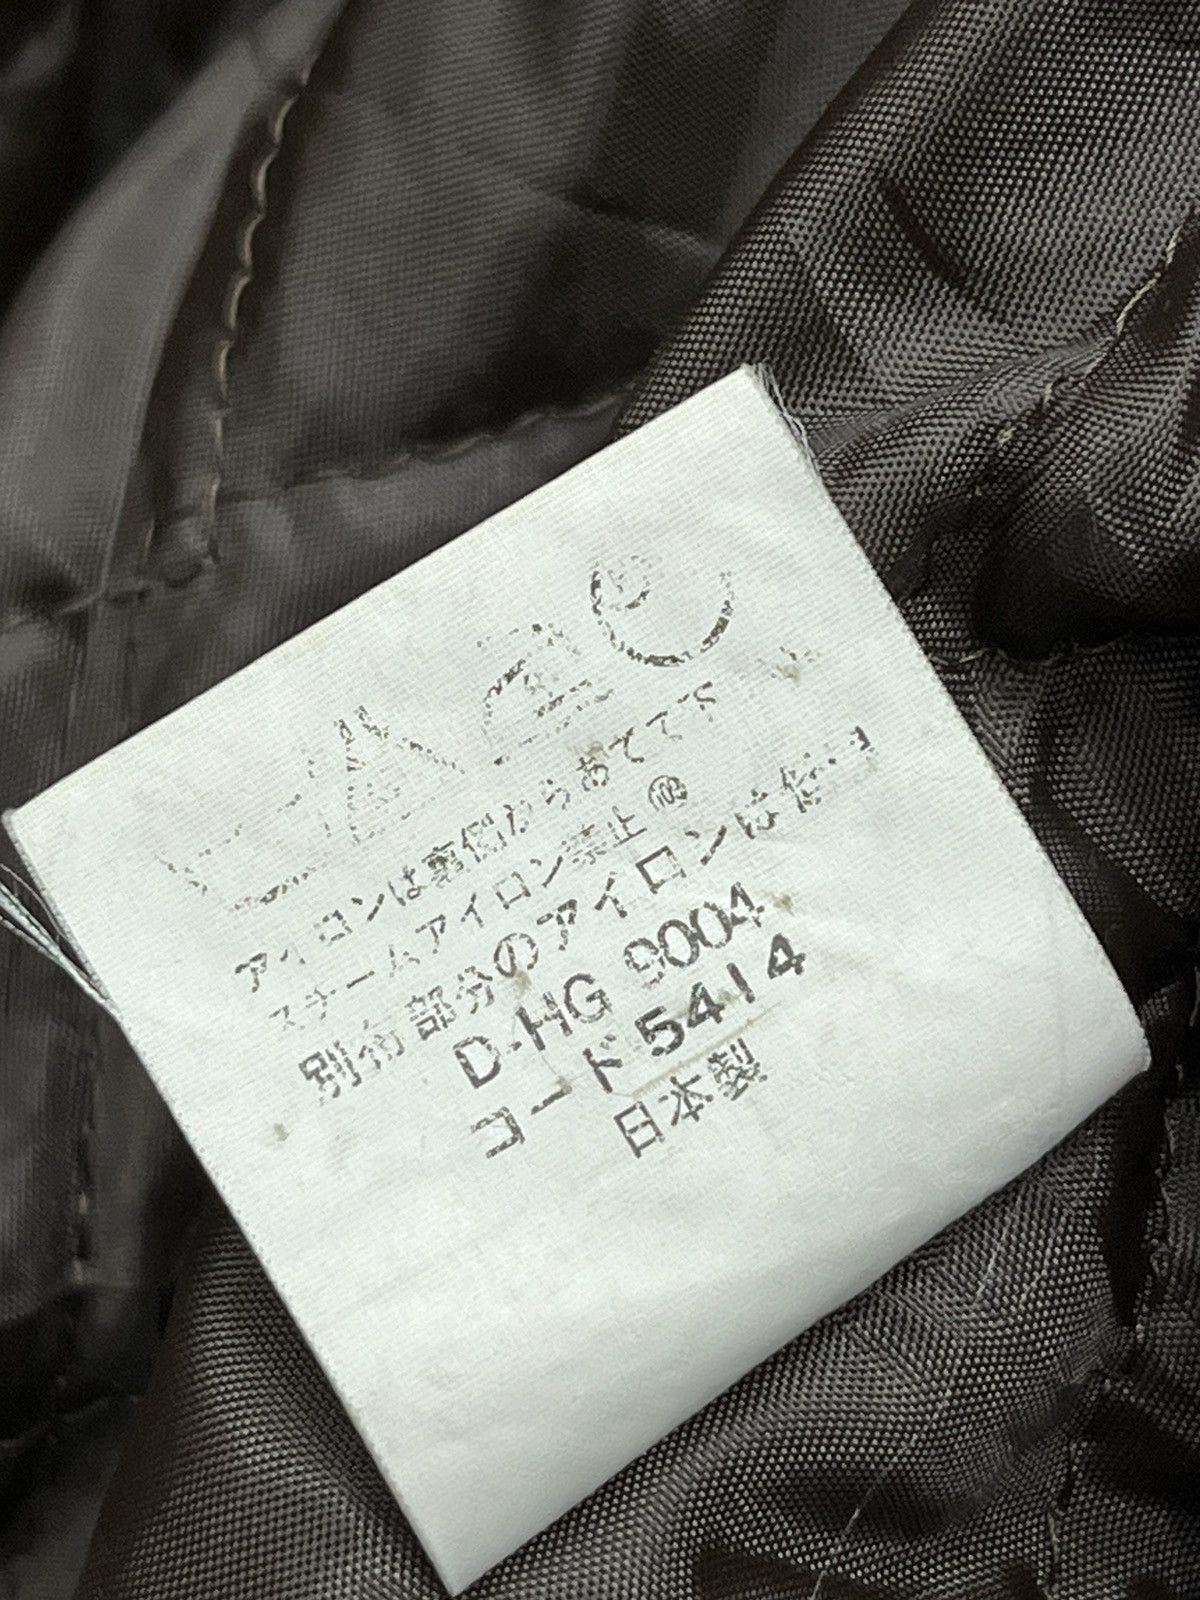 アイロンは裏側からあてて下
スチームアイロン禁止 103
別布部分のアイロンは
D-HG 9004
コード 5414
日本製